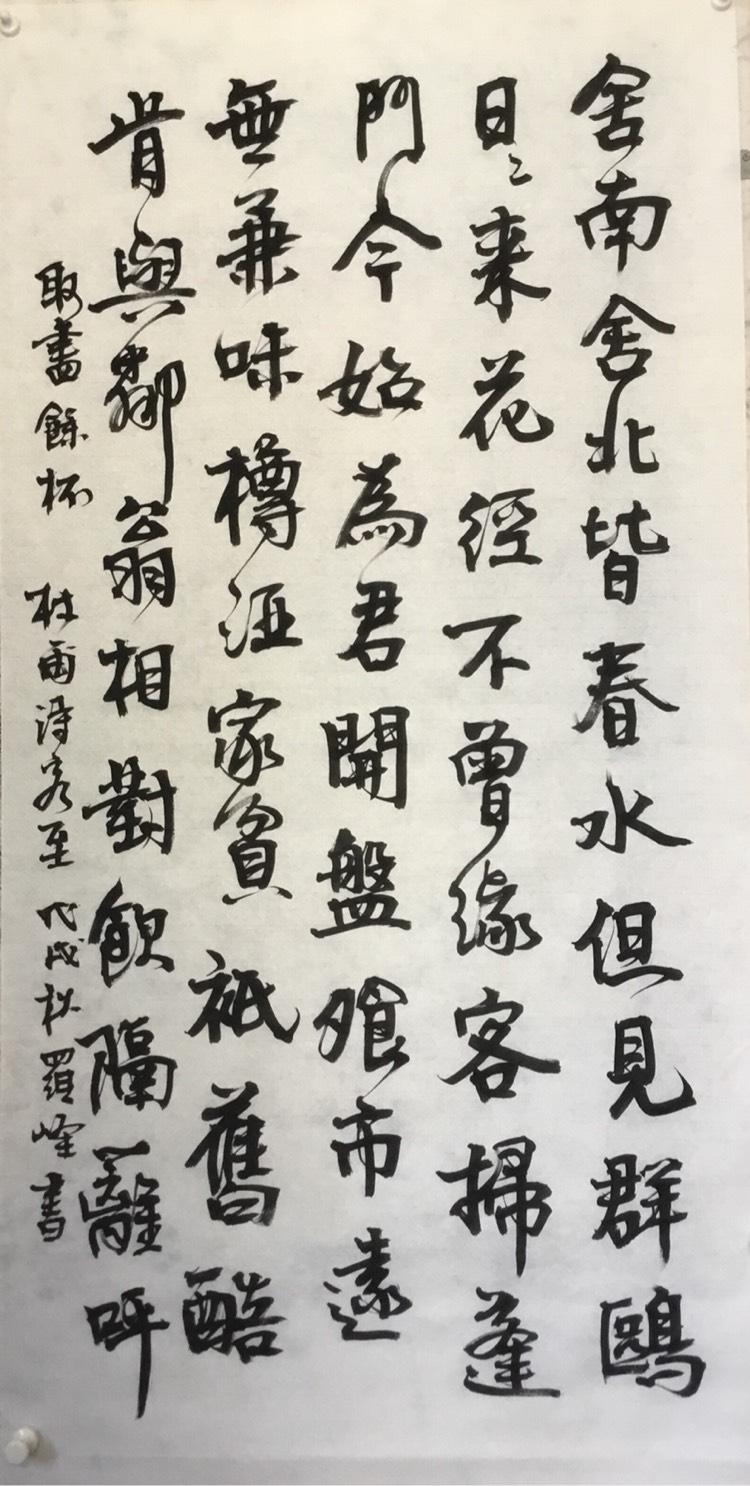 舍南舍北皆春水但見群鷗
日々来花徑不曽緣客掃蓬
門今始為君開盤飧市遠
無兼味樽酒家貧衹舊醅
肯與鄰翁相對飲隔離呼
取盡餘杯 杜甫詩客至 戊戌秋羅峰書